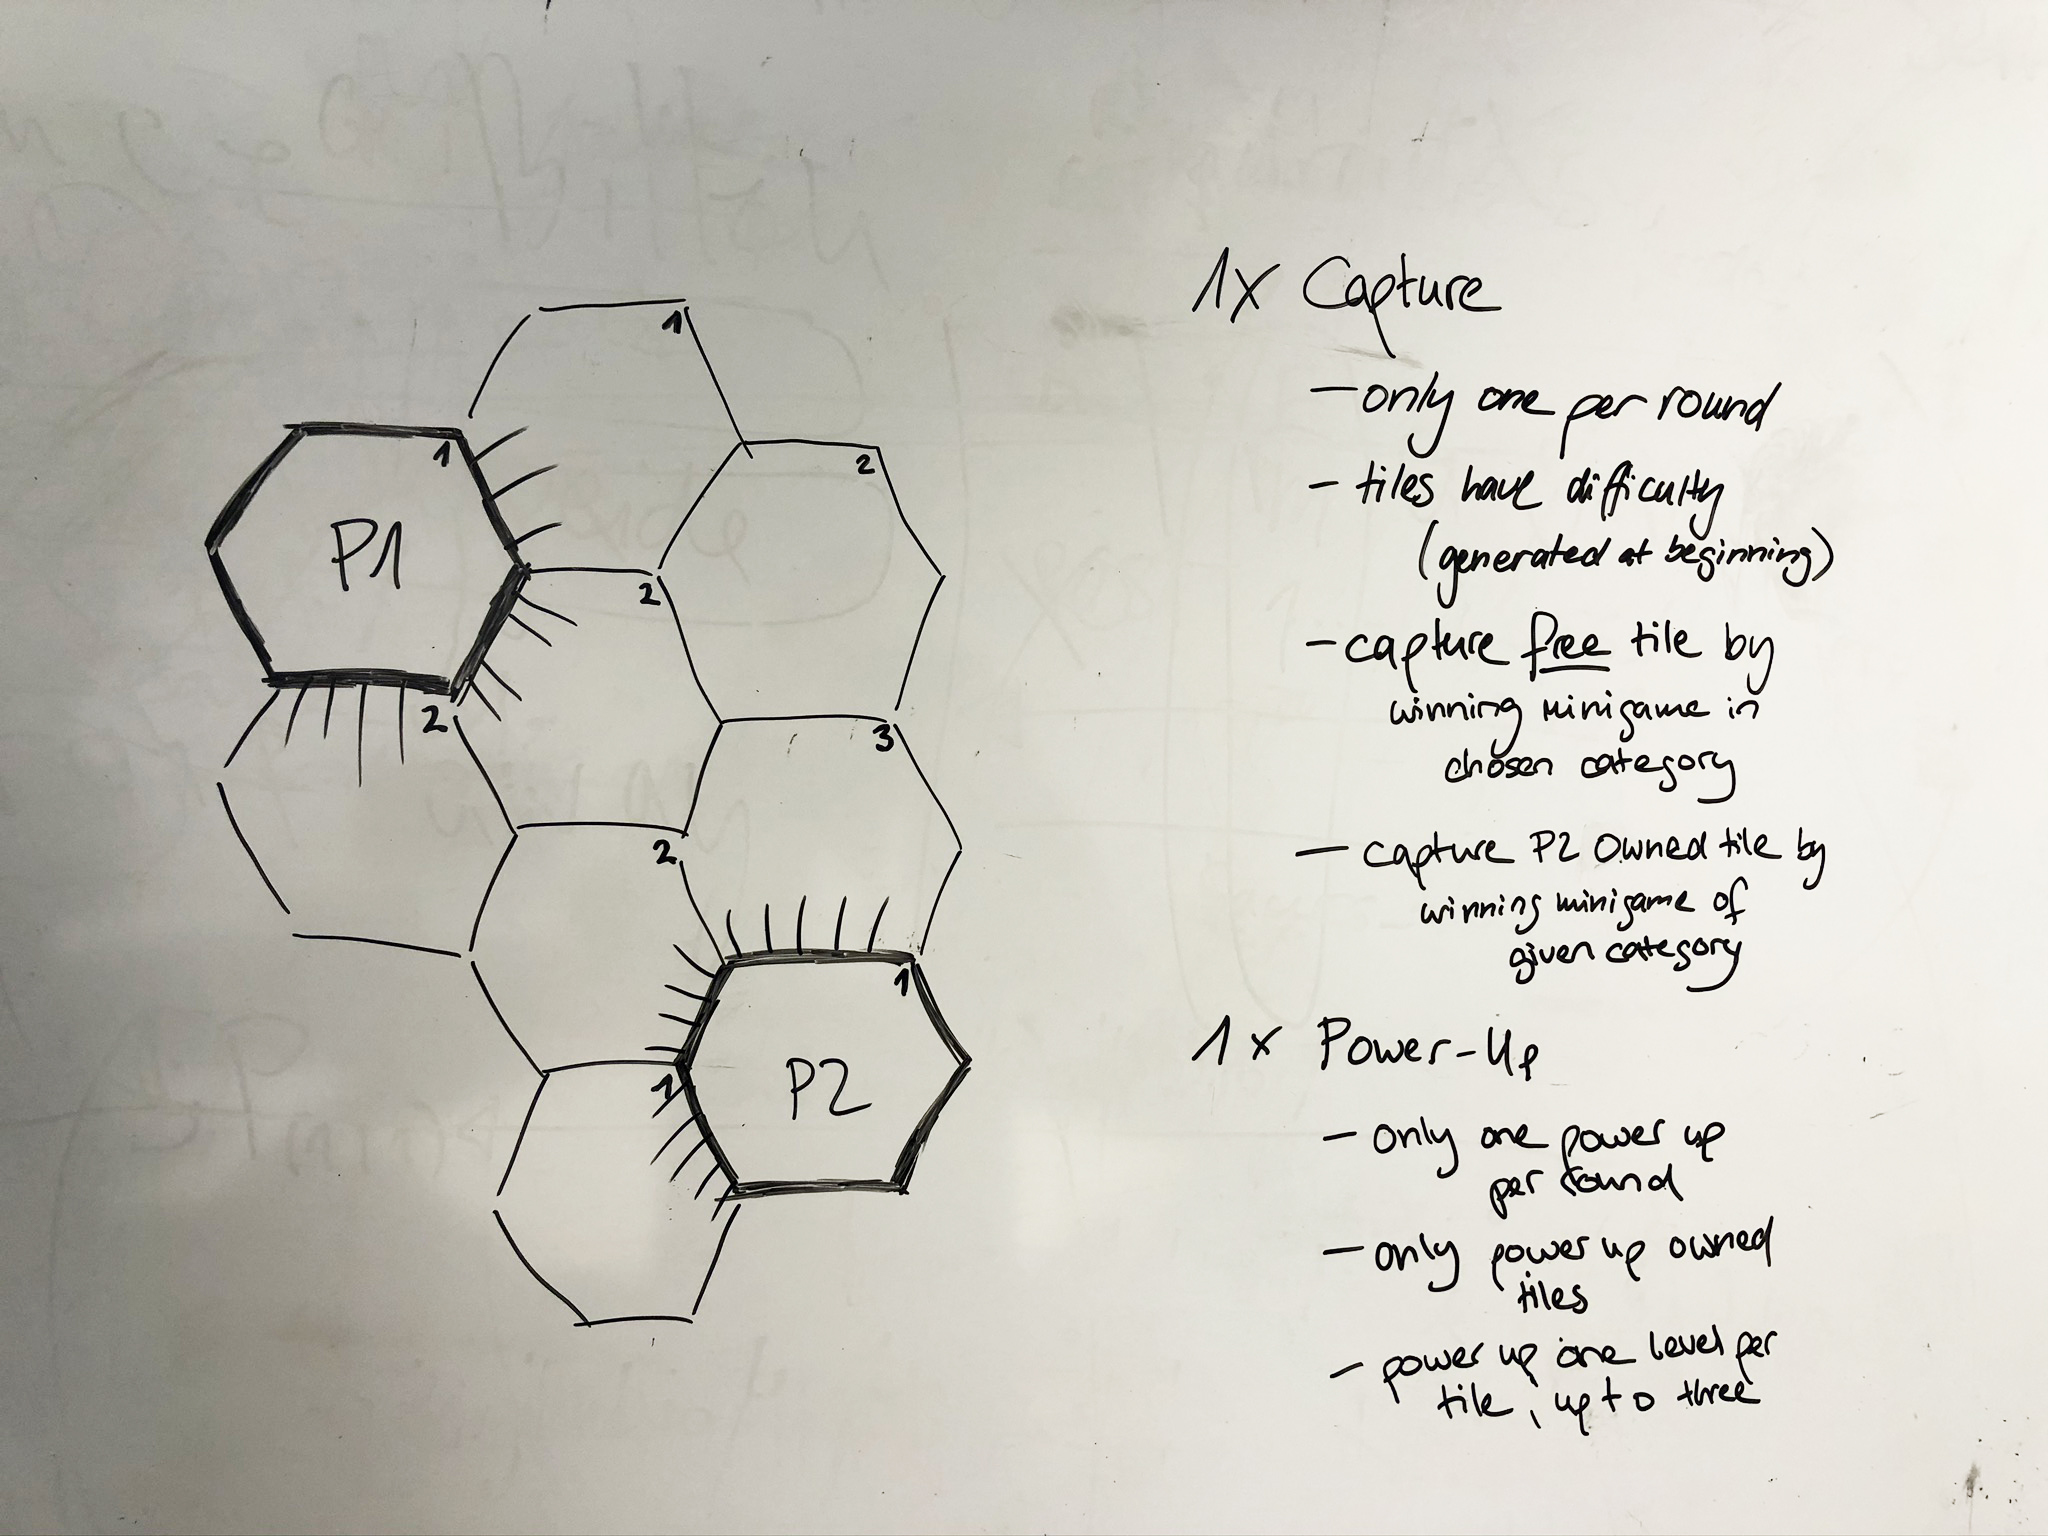 1
1
P1
2
2
2
3
2
1
P2
1
1x Capture
- only one per round
- tiles have difficulty
(generated at beginning)
- capture free tile by
winning minigame in
chosen category
- capture P2 owned tile by
winning minigame of
given category
1x Power-Up
- only one power up
per round
- only power up owned
tiles
- power up one level per
tile, up to three